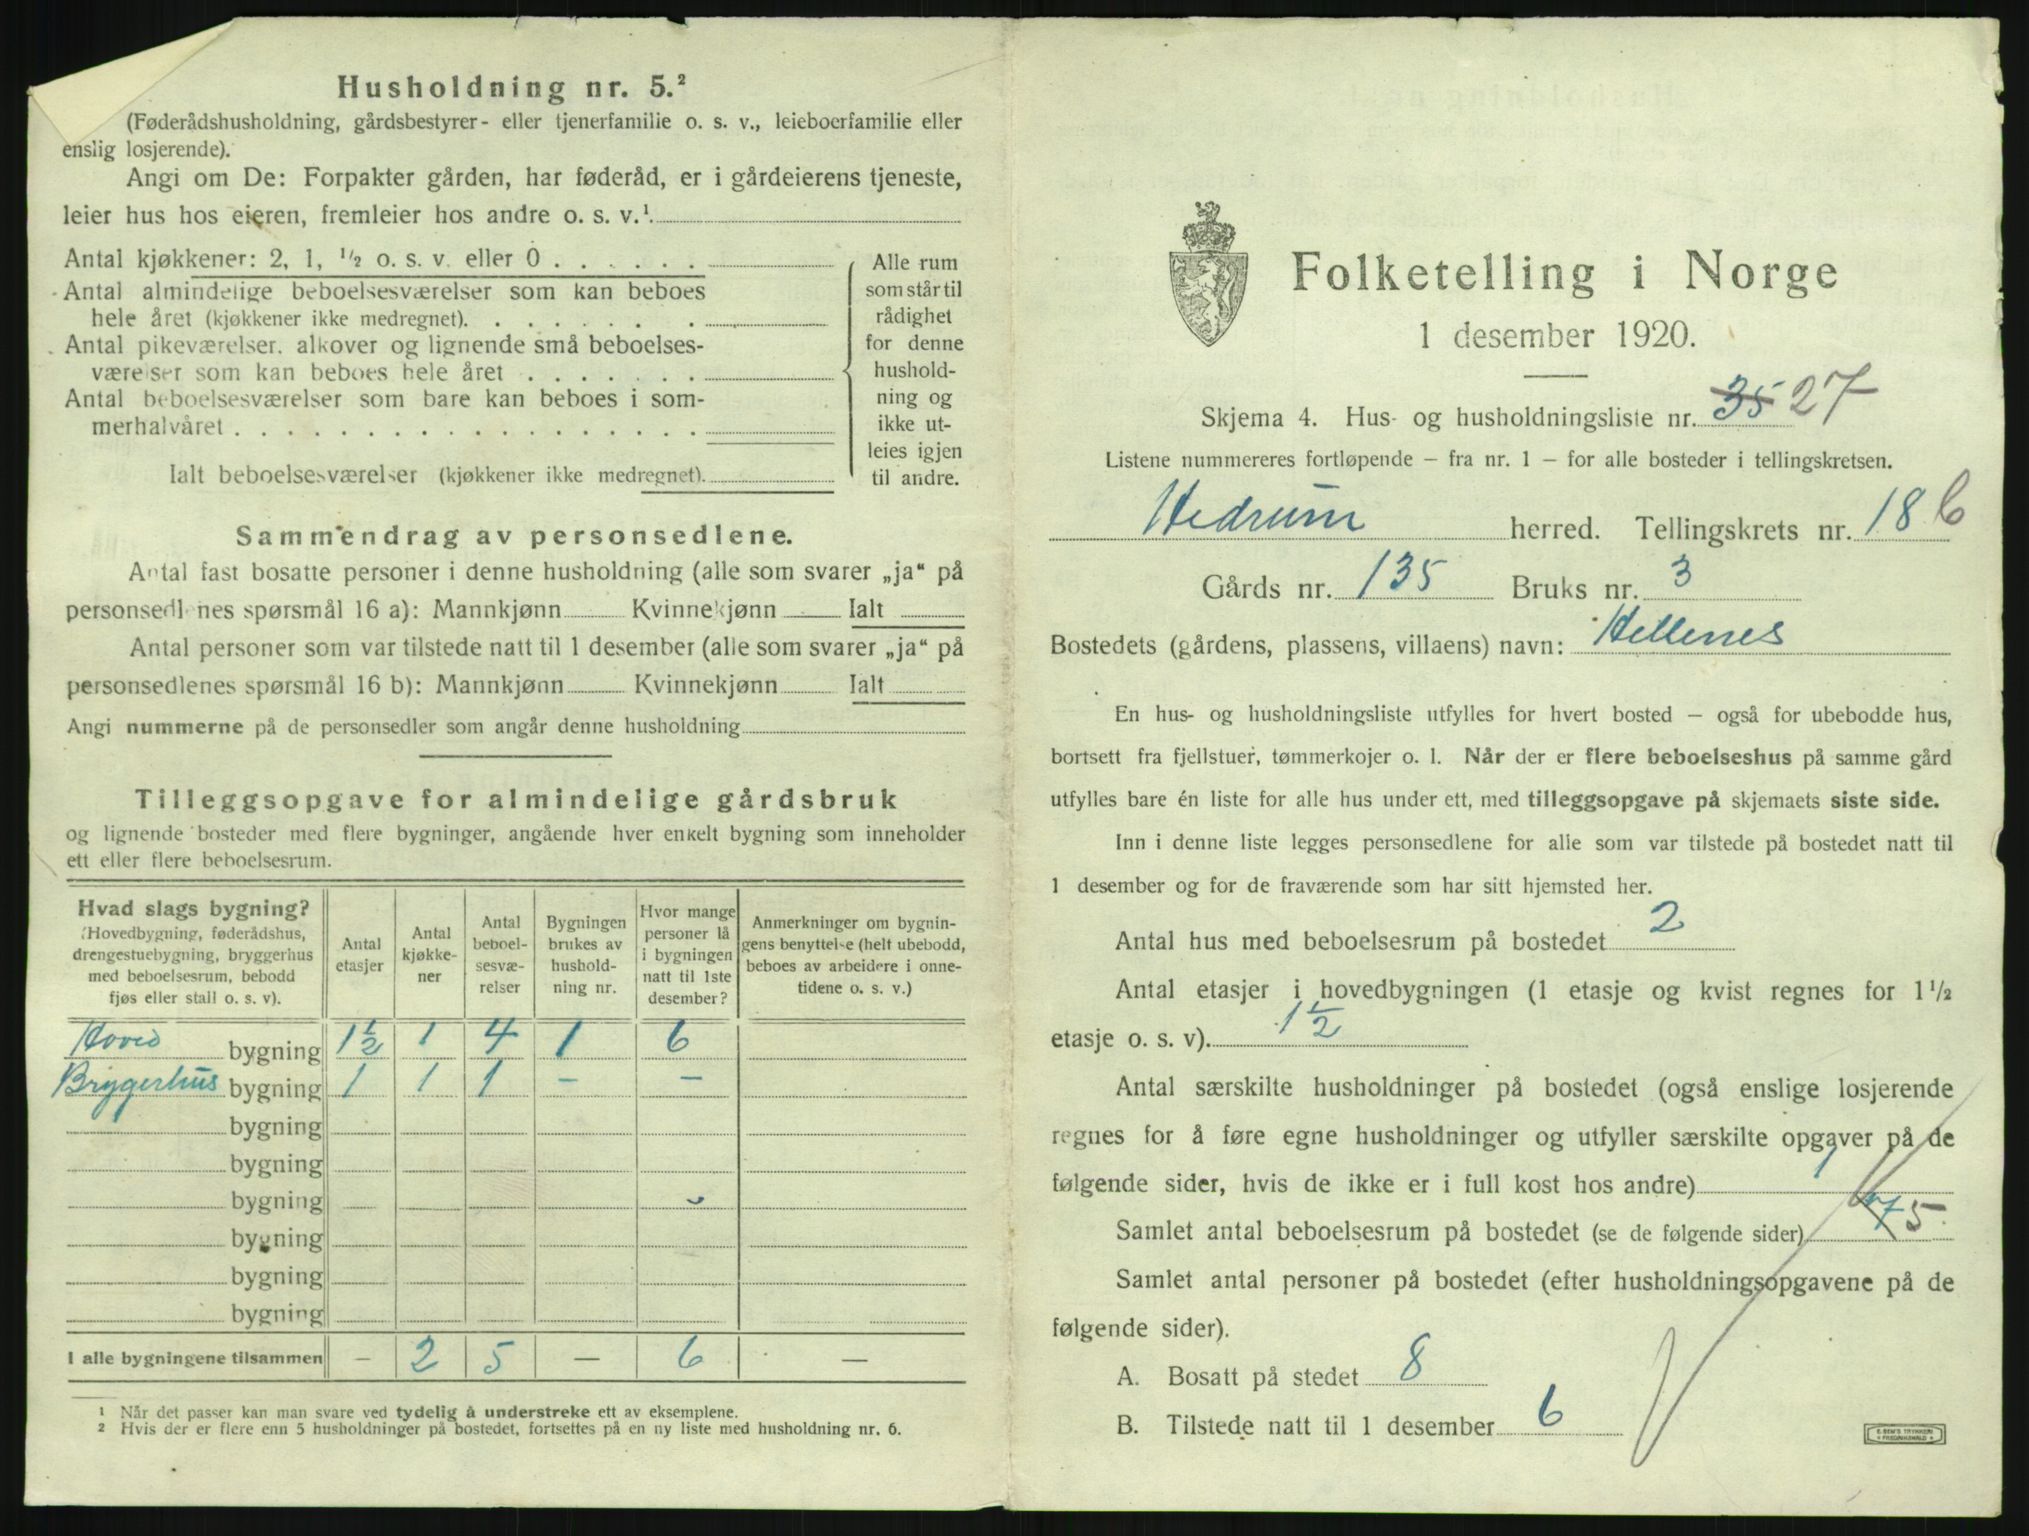 Husholdning nr. 5.²
(Føderådshusholdning, gårdsbestyrer- eller tjenerfamilie o. s. v., leieboerfamilie eller
enslig losjerende).
Angi om De: Forpakter gården, har føderåd, er i gårdeierens tjeneste,
leier hus hos eieren, fremleier hos andre o. s. v.¹
Antal kjøkkener: 2, 1, ½ o. s. v. eller 0
Antal almindelige beboelsesværelser som kan beboes
hele året (kjøkkener ikke medregnet).
Antal pikeværelser, alkover og lignende små beboelses-
værelser som kan beboes hele året
Antal beboelsesværelser som bare kan beboes i som-
merhalvåret
Ialt beboelsesværelser (kjøkkener ikke medregnet).
Alle rum
som står til
rådighet
for denne
hushold-
ning og
ikke ut-
leies igjen
til andre.
Sammendrag av personsedlene.
Antal fast bosatte personer i denne husholdning (alle som svarer „ja“ på
personsedlenes spørsmål 16 a): Mannkjønn Kvinnekjønn Ialt
Antal personer som var tilstede natt til 1 desember (alle som svarer „ja“ på
personsedlenes spørsmål 16 b): Mannkjønn Kvinnekjønn Ialt
Angi nummerne på de personsedler som angår denne husholdning
Tilleggsopgave for almindelige gårdsbruk
og lignende bosteder med flere bygninger, angående hver enkelt bygning som inneholder
ett eller flere beboelsesrum.
Hvad slags bygning?
(Hovedbygning, føderådshus,
drengestuebygning, bryggerhus
med beboelsesrum, bebodd
fjøs eller stall o. s. v).
Antal
etasjer
Antal
kjøkke-
ner
Antal
beboel-
sesvæ-
relser
Bygningen
brukes av
hushold-
ning nr.
Hvor mange
personer lå
i bygningen
natt til 1ste
desember?
Anmerkninger om bygnin-
gens benyttelse (helt ubebodd,
beboes av arbeidere i onne-
tidene o. s. v.)
Hoved bygning 1½ 1 4 1 6
Bryggerhus bygning 1 1 1 – –
bygning
bygning
bygning
bygning
bygning
bygning
I alle bygningene tilsammen – 2 5 – 6 –
¹ Når det passer kan man svare ved tydelig å understreke ett av eksemplene.
² Hvis der er flere enn 5 husholdninger på bostedet, fortsettes på en ny liste med husholdning nr. 6.
Folketelling i Norge
1 desember 1920.
Skjema 4. Hus- og husholdningsliste nr. 35 27
Listene nummereres fortløpende – fra nr. 1 – for alle bosteder i tellingskretsen.
Hedrum herred. Tellingskrets nr. 18 b
Gårds nr. 135 Bruks nr. 3
Bostedets (gårdens, plassens, villaens) navn: Hellenes
En hus- og husholdningsliste utfylles for hvert bosted – også for ubebodde hus,
bortsett fra fjellstuer, tømmerkojer o. l. Når der er flere beboelseshus på samme gård
utfylles bare én liste for alle hus under ett, med tilleggsopgave på skjemaets siste side.
Inn i denne liste legges personsedlene for alle som var tilstede på bostedet natt til
1 desember og for de fraværende som har sitt hjemsted her.
Antal hus med beboelsesrum på bostedet 2
Antal etasjer i hovedbygningen (1 etasje og kvist regnes for 1½
etasje o. s. v). 1½
Antal særskilte husholdninger på bostedet (også enslige losjerende
regnes for å føre egne husholdninger og utfyller særskilte opgaver på de
følgende sider, hvis de ikke er i full kost hos andre) 1
Samlet antal beboelsesrum på bostedet (se de følgende sider) 7 5
Samlet antal personer på bostedet (efter husholdningsopgavene på de
følgende sider).
A. Bosatt på stedet 8
B. Tilstede natt til 1 desember 6